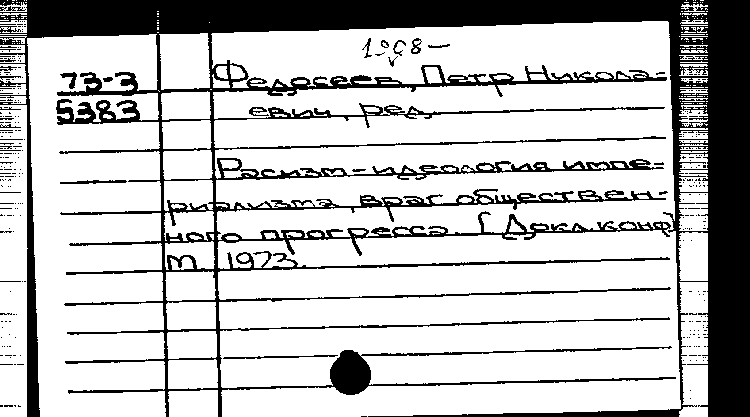 1908-
73-3 Федосеев, Петр Никола=
5383 евич, ред.
Расизм - идеология импе=
риализма, враг обществен-
ного прогресса. [Докл. конф]
М. 1973.